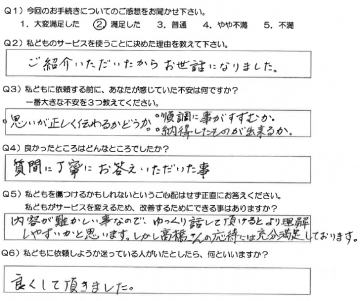 Q1）今回のお手続きについてのご感想をお聞かせ下さい。
1．大変満足した ②満足した 3．普通 4．やや不満 5．不満
Q2）私どものサービスを使うことに決めた理由を教えて下さい。
ご紹介いただいたからお世話になりました。
Q3）私どもに依頼する前に、あなたが感じていた不安は何ですか？
一番大きな不安を3つ教えてください。
○思いが正しく伝わるかどうか ○順調に事がすすむか。
○納得したものが出来るか。
Q4）良かったところはどんなところでしたか？
質問に丁寧にお答えいただいた事
Q5）私どもを傷つけるかもしれないというご心配はせず正直にお答えください。
私どもがサービスを変えるため、改善するためにできる事はありますか？
内容が難かしい事なので、ゆっくり話して頂けるとより理解
しやすいかと思います。しかし高橋さんの応待には充分満足しております。
Q6）私どもに依頼しようか迷っている人がいたとしたら、何といいますか？
良くして頂きました。